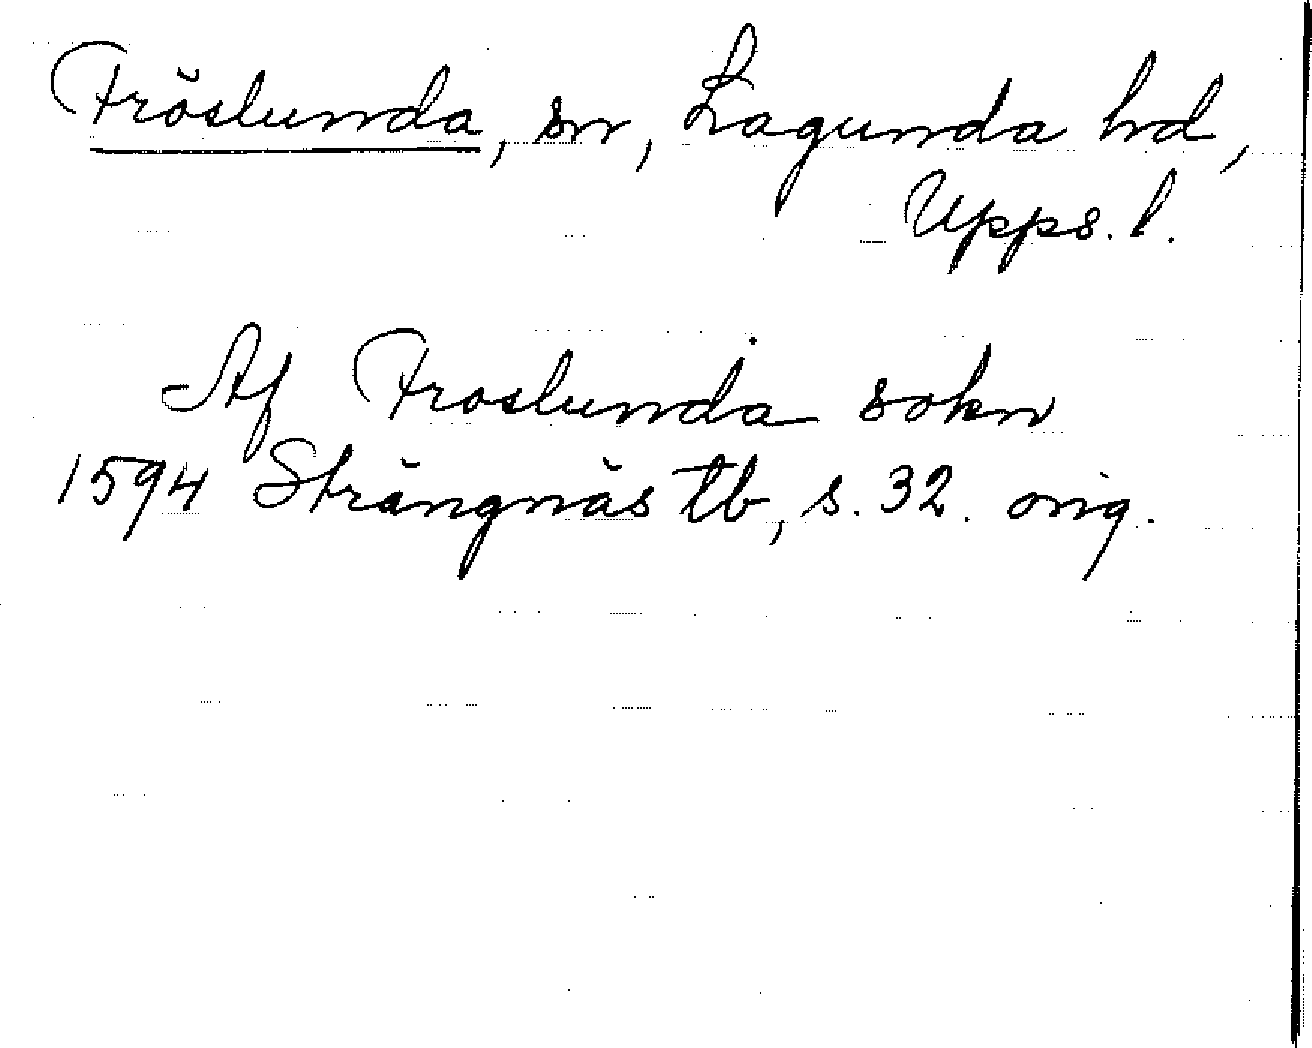 Fröslunda, sn, Lagunda hd,
Upps. l.
Af Froslunda sokn
1594 Strängnäs tb, s. 32. orig.